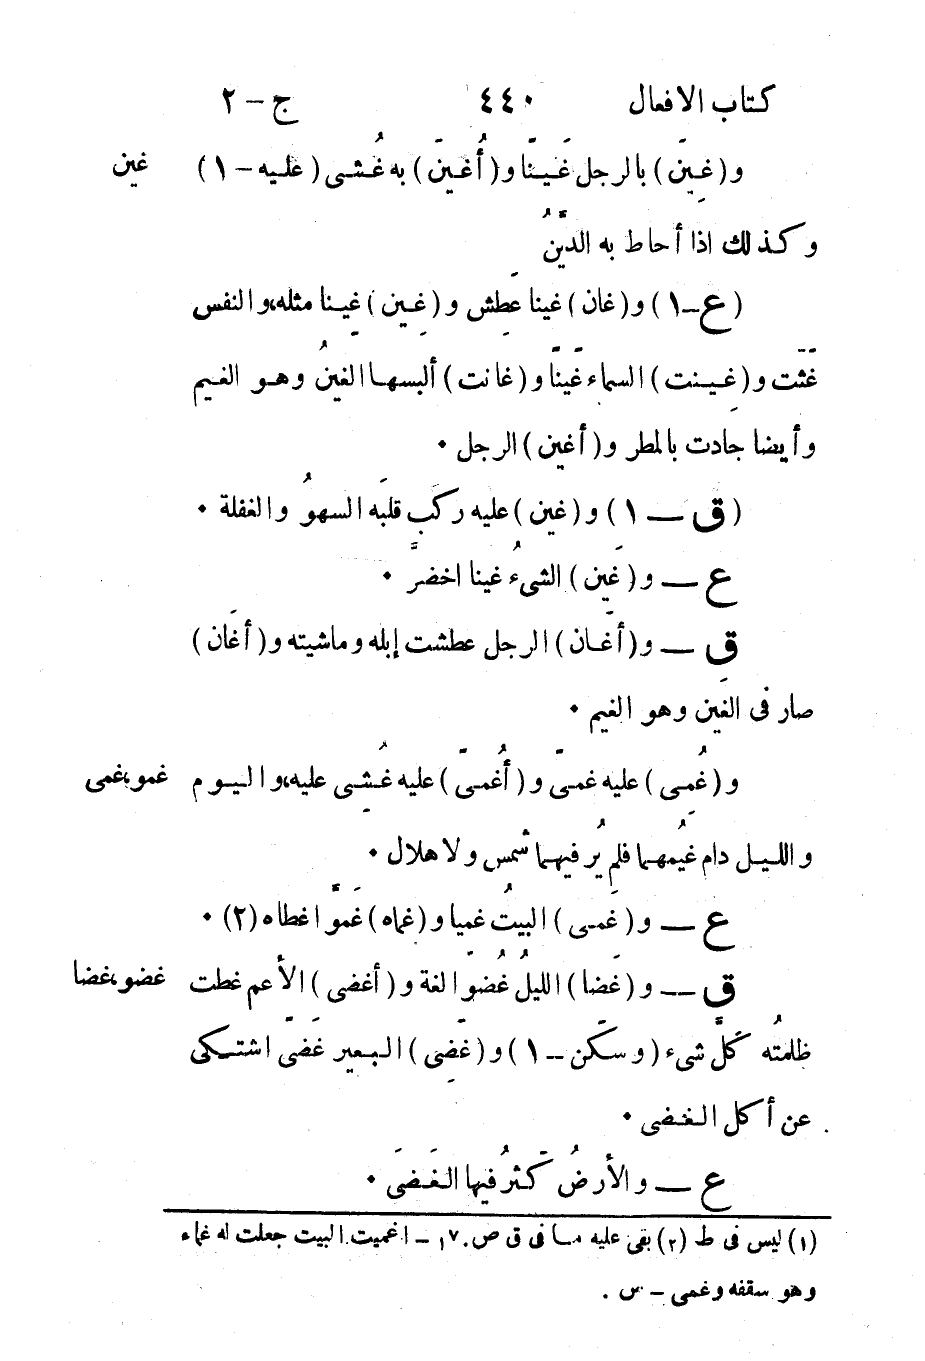 كتاب الافعال ٤٤٠ ج – ٢
و (غِينَ) بالرجل غَيناً و (أُغينَ) به غُشى (عليه – ١) غين
وكذلك اذا أحاط به الدَّينُ
(ع – ١) و (غان) غينا عَطِش و (غِين) غَينا مثله، والنفس
غَثَت و (غِينت) السماء غَيناً و (غانت) ألبسها الغينُ وهو الغيم
وأيضا جادت بالمطر و (أغين) الرجل ٠
(ق – ١) و (غين) عليه ركَب قلبَه السهوُ والغفلة ٠
ع – و (غَين) الشىءُ غينا اخضرَّ ٠
ق – و (أغَان) الرجل عطشت إبله وماشيته و (أغَان)
صار فى الغَين وهو الغيم ٠
و (غُمِى) عليه غمىً و (أُغمىَ) عليه غُشِى عليه، واليوم غمو،غمى
والليل دام غَيمُهما فلم يُر فيهما شَمس ولا هلال ٠
ع – و (غَمى) البيتُ غميا و (غماه) غَمَوّا غطاه (٢) ٠
ق – و (غَضا) الليلُ غُضُوّا لغة و (أغضى) الأعم غطت غضو،غضا
ظلمتُه كلَّ شىء (وسكَن – ١) و (غَضِى) البعير غَضىً اشتكى
عن أكل الغضى ٠
ع – والأرضُ كَثُرُ فيها الغَضَى ٠
(١) ليس فى ط (٢) بقى عليه ما فى ق ص ١٧٠ – اغميت البيت جعلت له غماء
وهو سقفه وغمى – س .